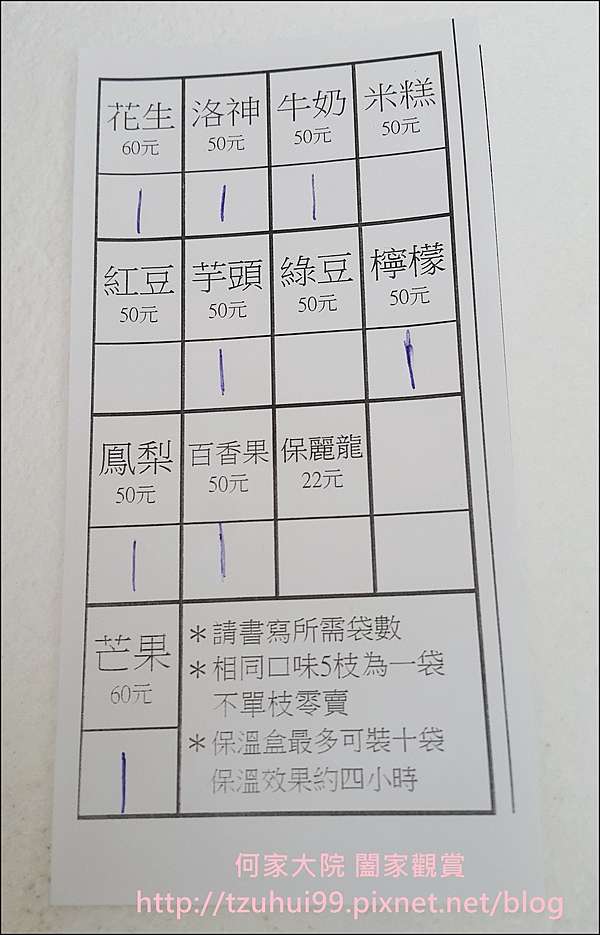 花生 洛神 牛奶 米糕
60元 50元 50元 50元
| | |
紅豆 芋頭 綠豆 檸檬
50元 50元 50元 50元
| |
鳳梨 百香果 保麗龍
50元 50元 22元
| |
芒果
60元
|
＊請書寫所需袋數
＊相同口味5枝為一袋
不單枝零賣
＊保溫盒最多可裝十袋
保溫效果約四小時
何家大院 闔家觀賞
http://tzuhui99.pixnet.net/blog